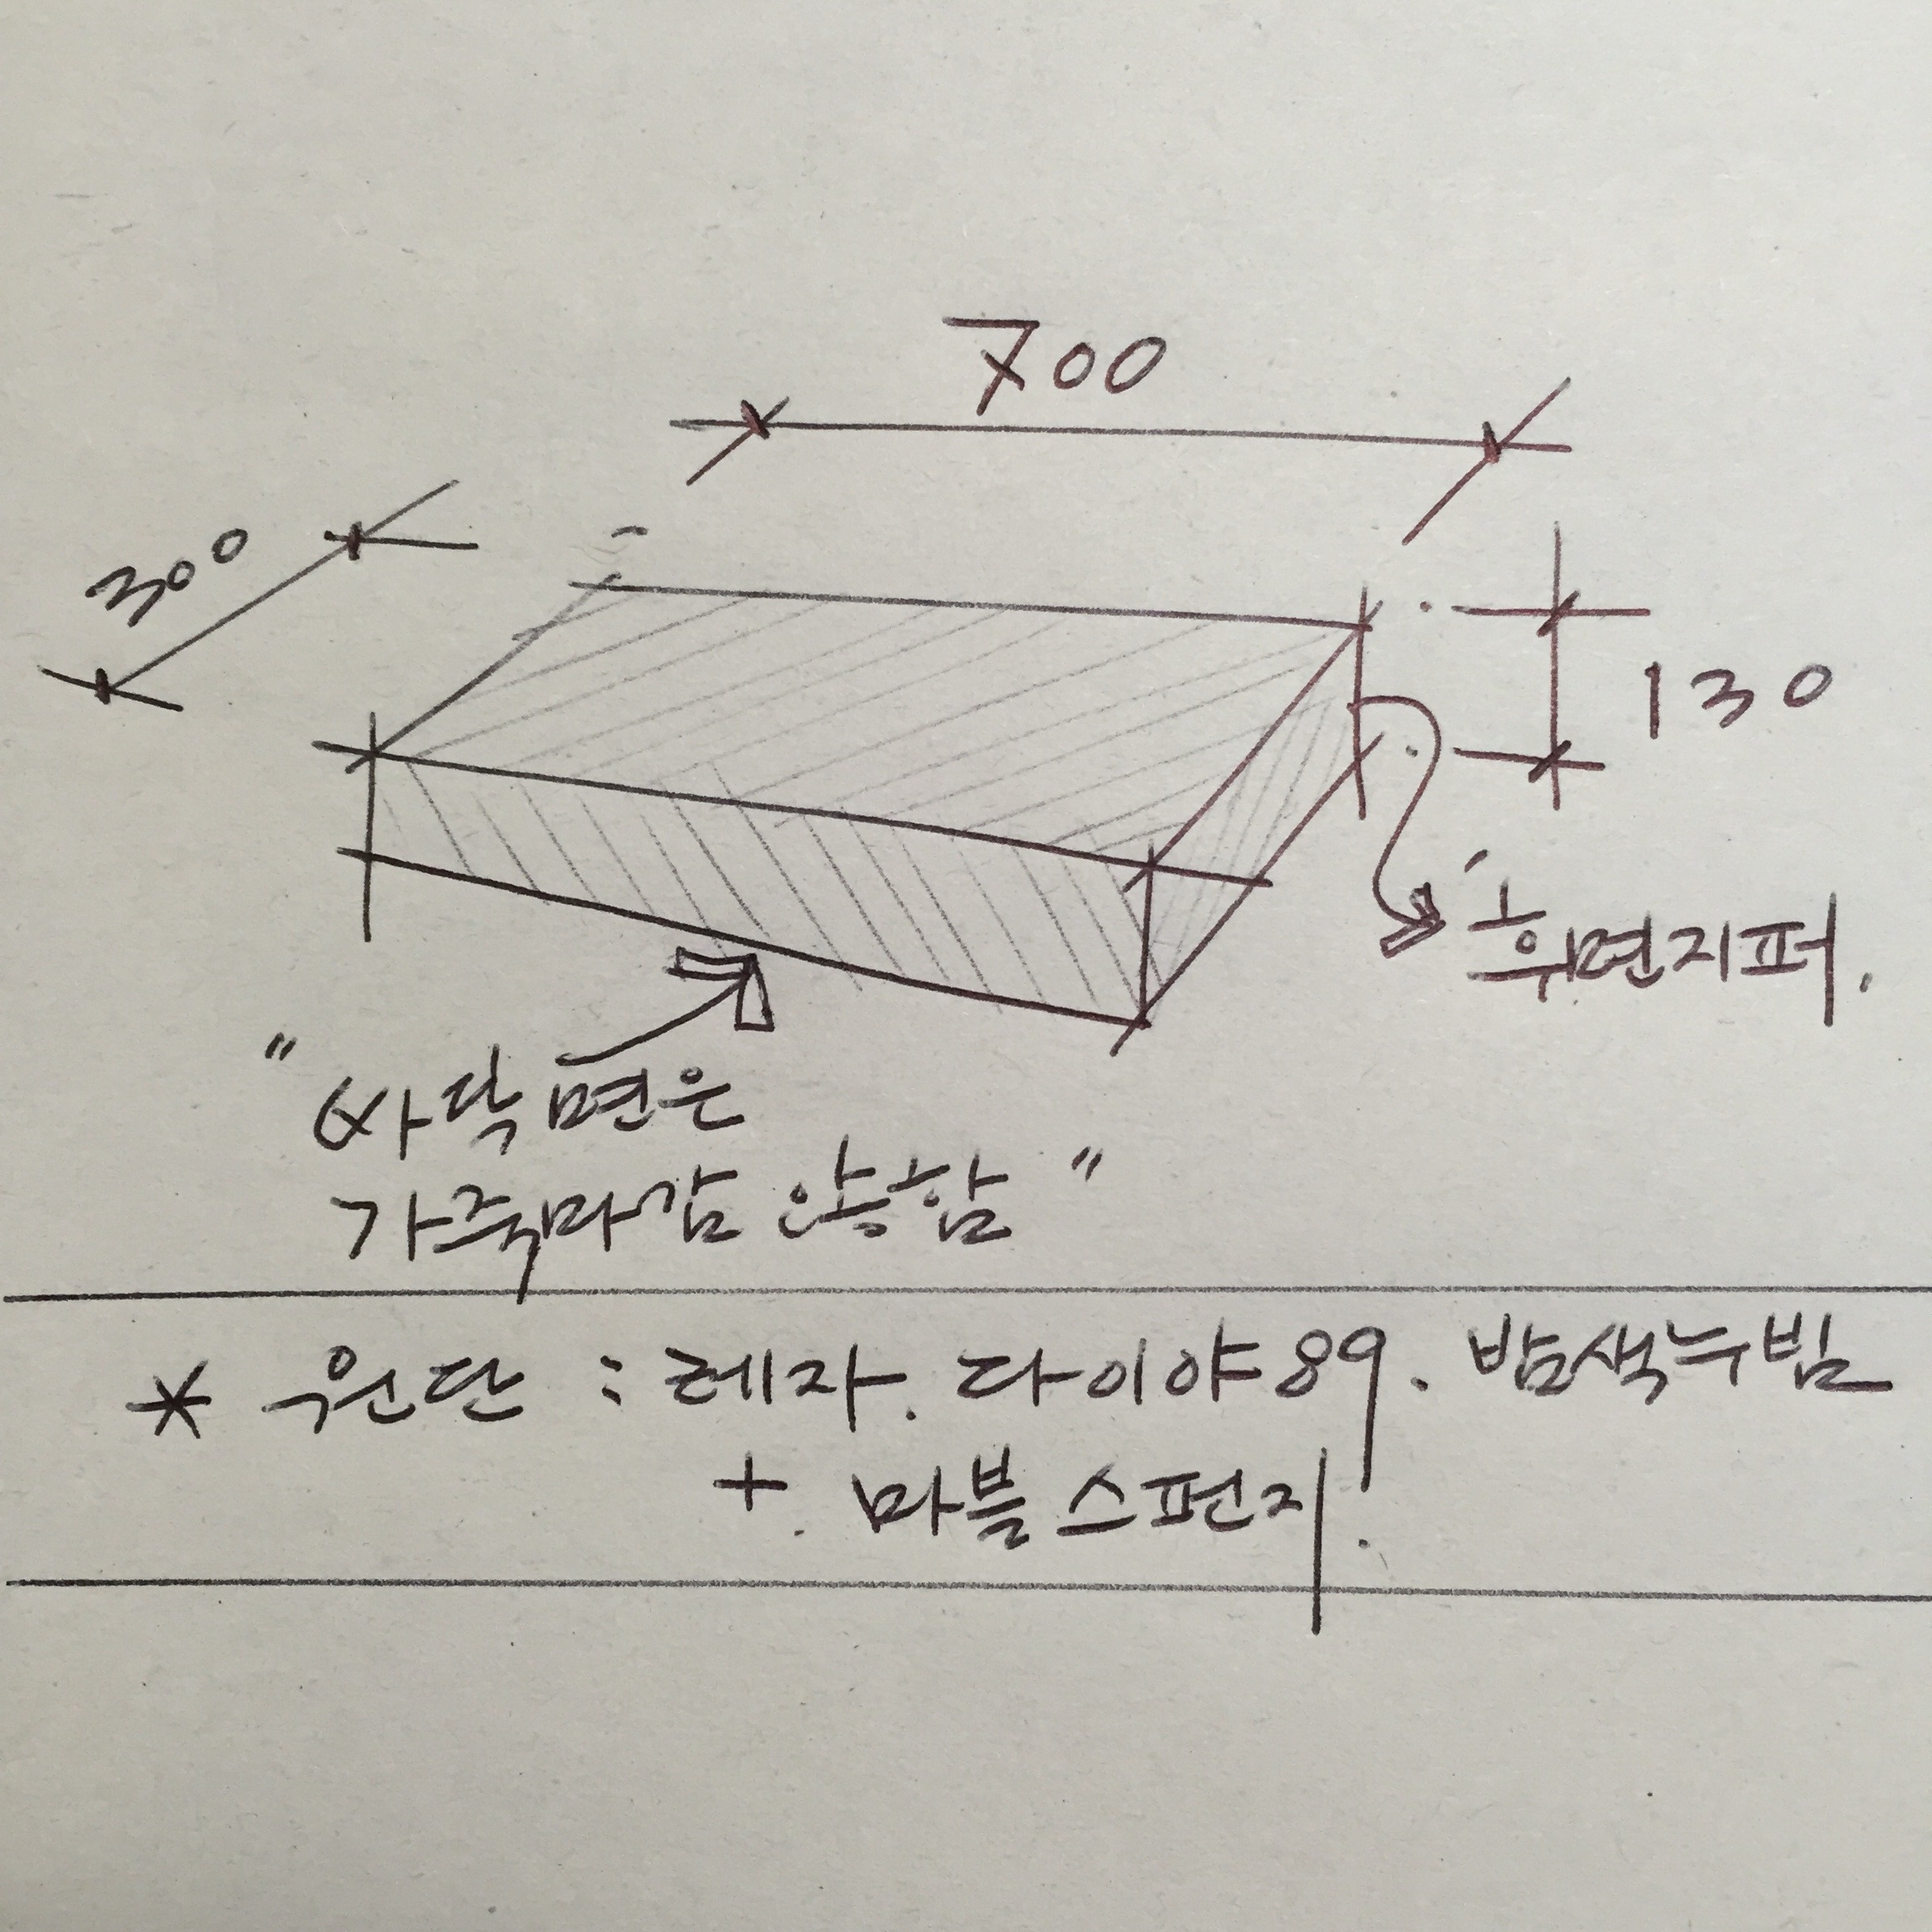 700
300
130
뒤면지퍼.
"바닥면은
가죽마감 안함"
* 원단 : 레자. 다이아89. 밤색누빔
+. 마블스펀지.